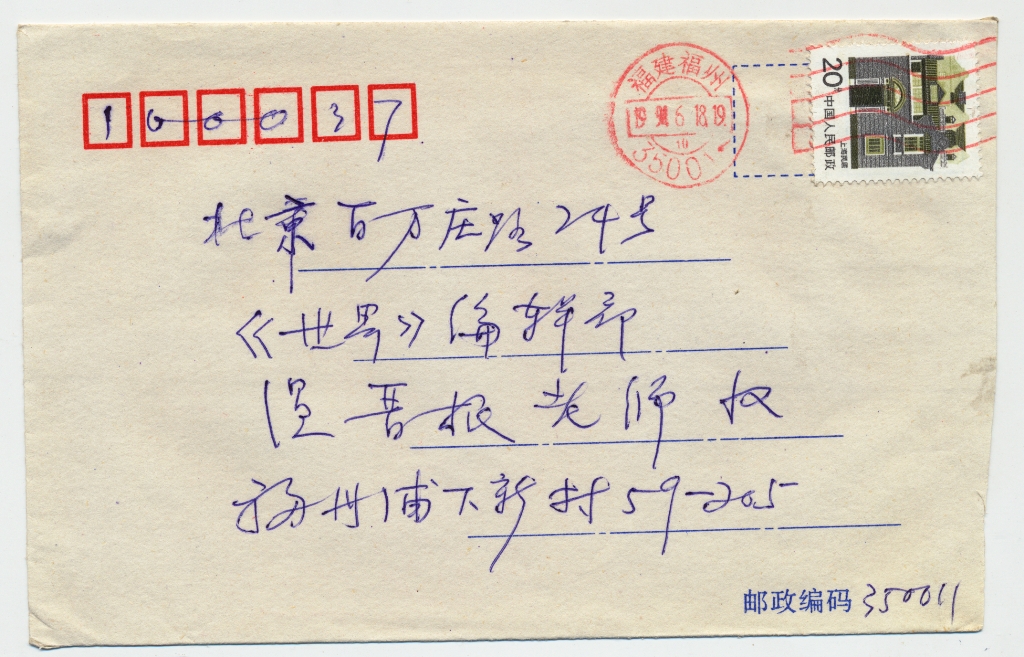 100037
福建福州
19 94 6 18.19
10
350011
20分
中国人民邮政
上海民居
北京百万庄路24号
《世界》编辑部
温晋根老师 收
福州浦下新村59-205
邮政编码 350011